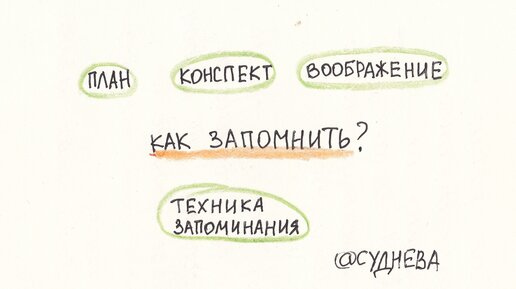 ПЛАН КОНСПЕКТ ВООБРАЖЕНИЕ
КАК ЗАПОМНИТЬ?
ТЕХНИКА
ЗАПОМИНАНИЯ
@СУДНЕВА